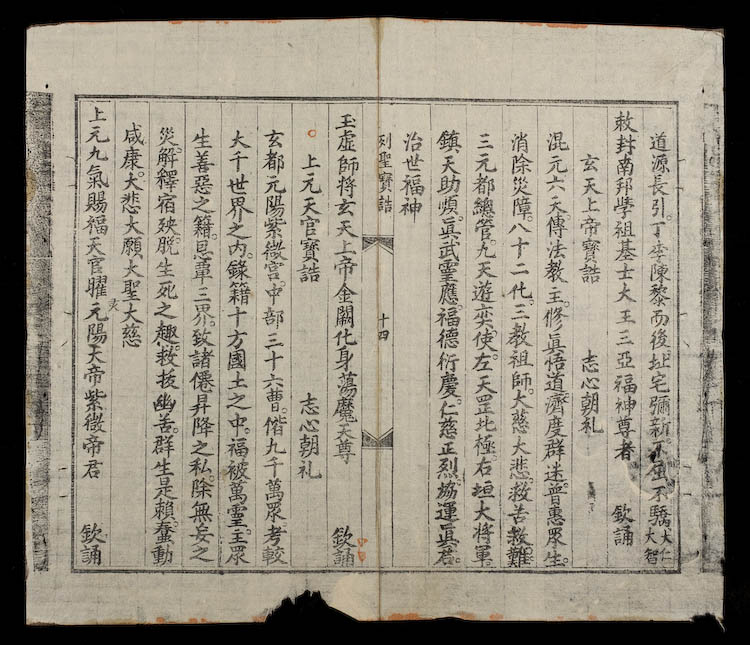 道源長引。丁李陳黎而後。址宅彌新。不伍不驕。大仁大智
敕封南邦學祖基士大王三亞福神尊者　欽誦
玄天上帝寶誥　志心朝礼
混元六天。傳法教主。修眞悟道。濟度群迷。普惠眾生。
消除災障。八十二化。三教祖師。大慈大悲。救苦救難。
三元都總管。九天遊奕使。左天罡北極。右垣大將軍。
鎮天助順。眞武靈應。福德衍慶。仁慈正烈。協運眞君。
治世福神
列聖寶誥　十四
玉虛師將玄天上帝金闕化身蕩魔天尊　欽誦
上元天官寶誥　志心朝礼
玄都元陽。紫微宮。中部三十六曹。偕九千萬眾。考較
大千世界之內。錄籍十方國土之中。福被萬靈。主眾
生善惡之籍。恩覃三界。致諸僊昇降之私。除無妄之
災。解釋宿殃。脫生死之趣。救拔幽苦。群生是賴。蠢動
咸康。大悲大願大聖大慈
上元九氣賜福天官曜元陽大帝紫微帝君　欽誦